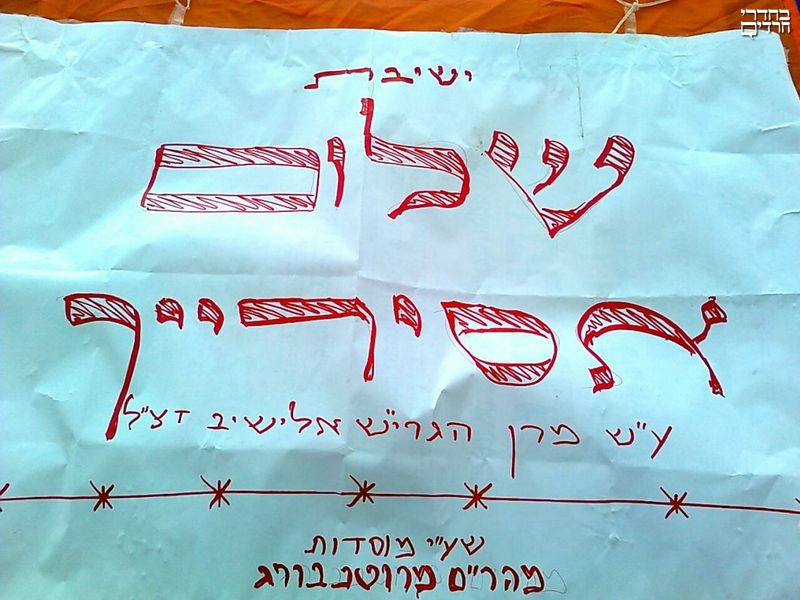 בחדרי
חרדים
ישיבת
שלום
אסירייך
ע"ש מרן הגרי"ש אלישיב זצ"ל
שע"י מוסדות
מהר"ם מרוטנבורג